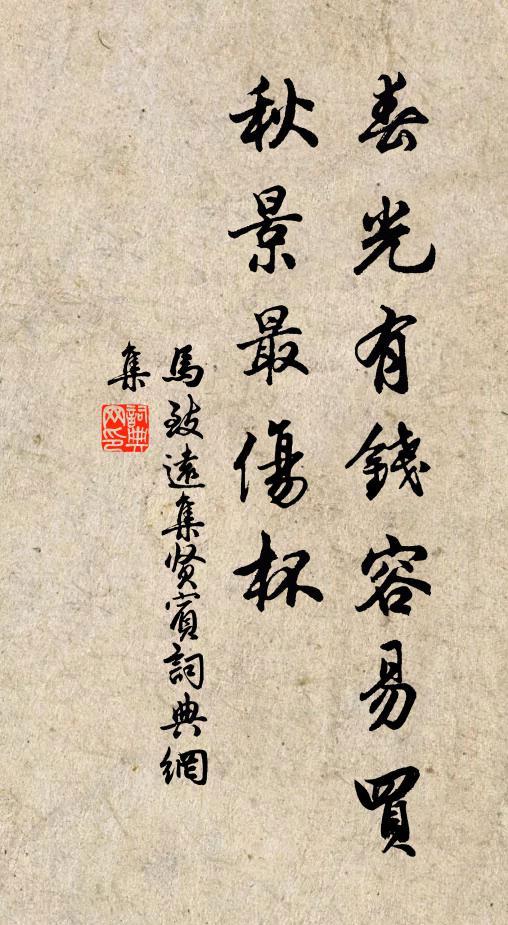 春光有錢容易買
秋景最傷杯
馬致遠集賢賓詞典網
集
詞典
网印